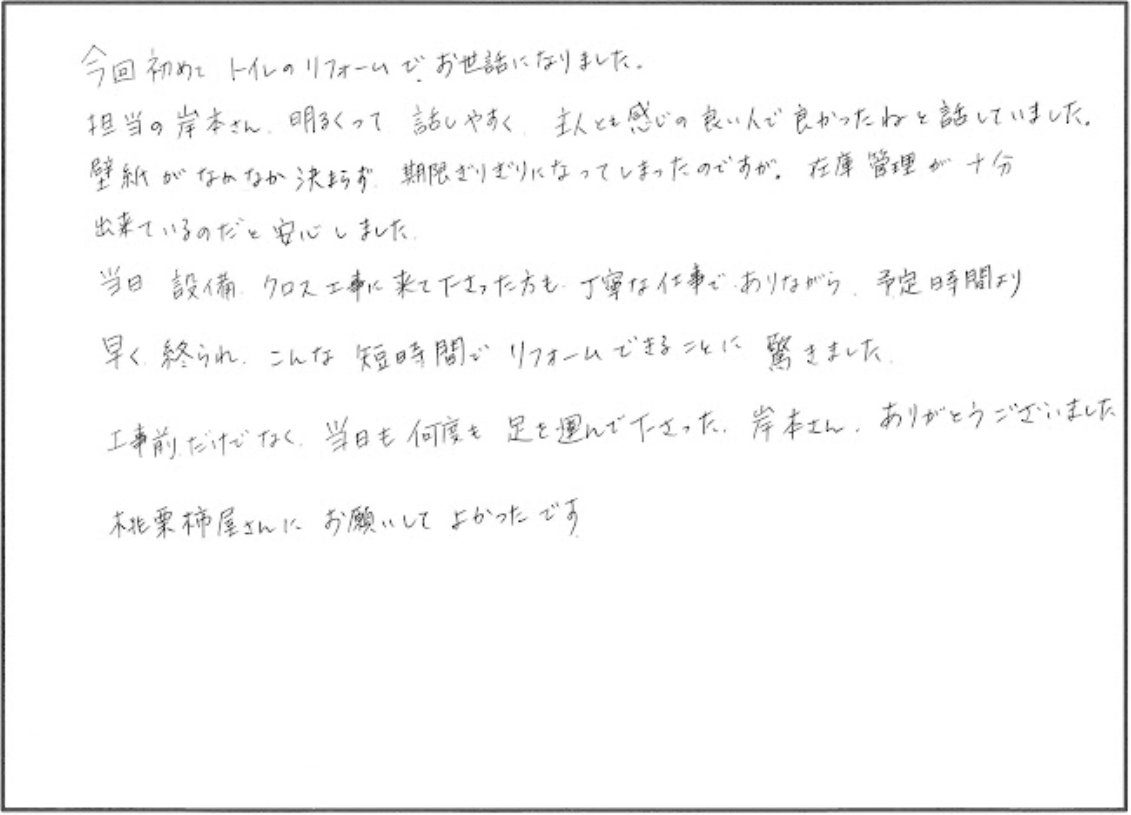 今回初めて トイレのリフォームで、お世話になりました。
担当の岸本さん、明るくって 話しやすく、主人とも感じの良い人で良かったねと話していました。
壁紙がなかなか決まらず、期限ぎりぎりになってしまったのですが。在庫管理が十分
出来ているのだと安心しました。
当日 設備、クロス工事に来て下さった方も、丁寧な仕事で、ありながら、予定時間より
早く、終られ、こんな 短時間で リフォームできることに 驚きました。
工事前だけでなく、当日も何度も 足を運んで下さった、岸本さん、ありがとうございました
桃栗柿屋さんに お願いして よかったです。